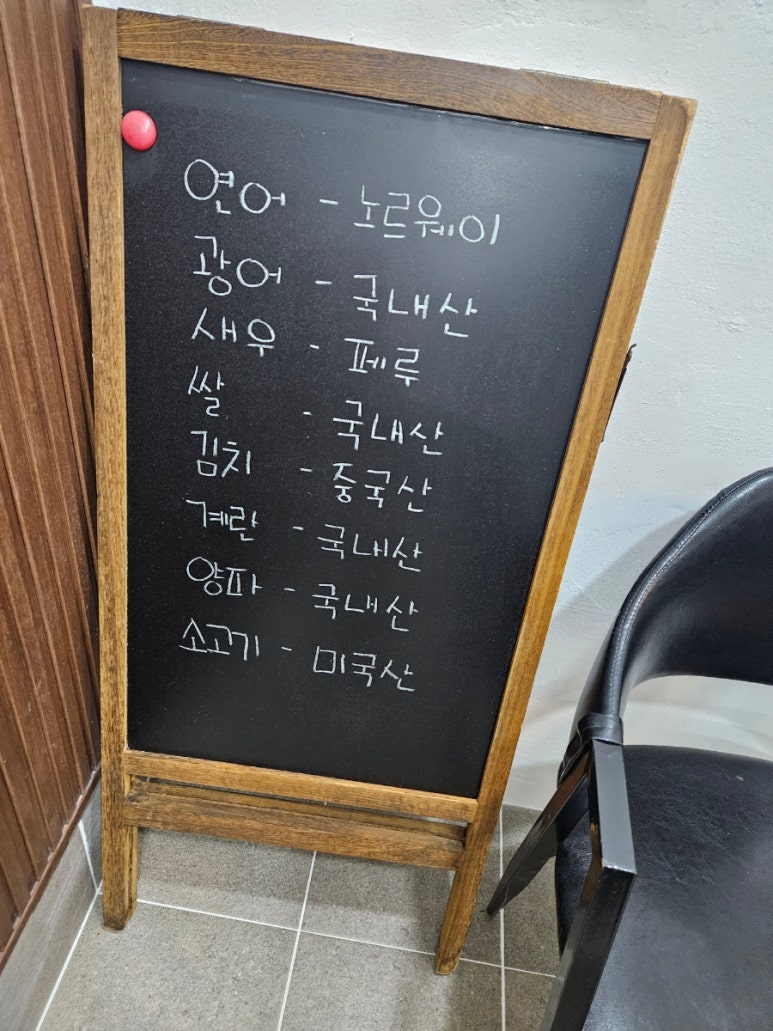 연어 - 노르웨이
광어 - 국내산
새우 - 페루
쌀 - 국내산
김치 - 중국산
계란 - 국내산
양파 - 국내산
소고기 - 미국산